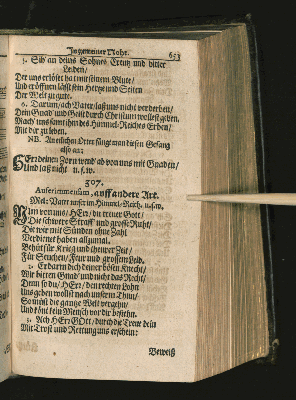 In gemeiner Noht. 633
5. Sih' an deins Sohnes Creutz und bitter
Leiden/
Der uns erlöset hat mit seinem Blute/
Und eröffnen läst sein Hertze und Seiten
Der Welt zu gute.
6. Darum/ ach Vater/ laß uns nicht verderben/
Dein Gnad' und Geist durch Christum wollest geben.
Mach' uns samt ihm des Himmel-Reiches Erben/
Mit dir zu leben.
NB. An etlichen Orten singet man diesen Gesang
also an:
HErr deinen Zorn wend' ab von uns mit Gnaden/
Und laß nicht u.s.w.
307.
Aufer immensam, auff andere Art.
Mel: Vater unser im Himmel-Reich. u.s.w.
Nim von uns/ HErr/ du treuer Gott/
Die schwere Straff' und grosse Ruht/
Die wir mit Sünden ohne Zahl
Verdienet haben allzumal.
Behüt für Krieg und theurer Zeit/
Für Seuchen/ Feur und grossem Leid.
2. Erbarm dich deiner bösen Knecht/
Wir bitten Gnad' und nicht das Recht/
Denn so du/ HErr/ den rechten Lohn
Uns geben wollst nach unserm Thun/
So müst die gantze Welt vergehn/
Und könt kein Mensch vor dir bestehn.
3. Ach HErr GOtt/ durch die Treue dein
Mit Trost und Rettung uns erschein:
Beweiß